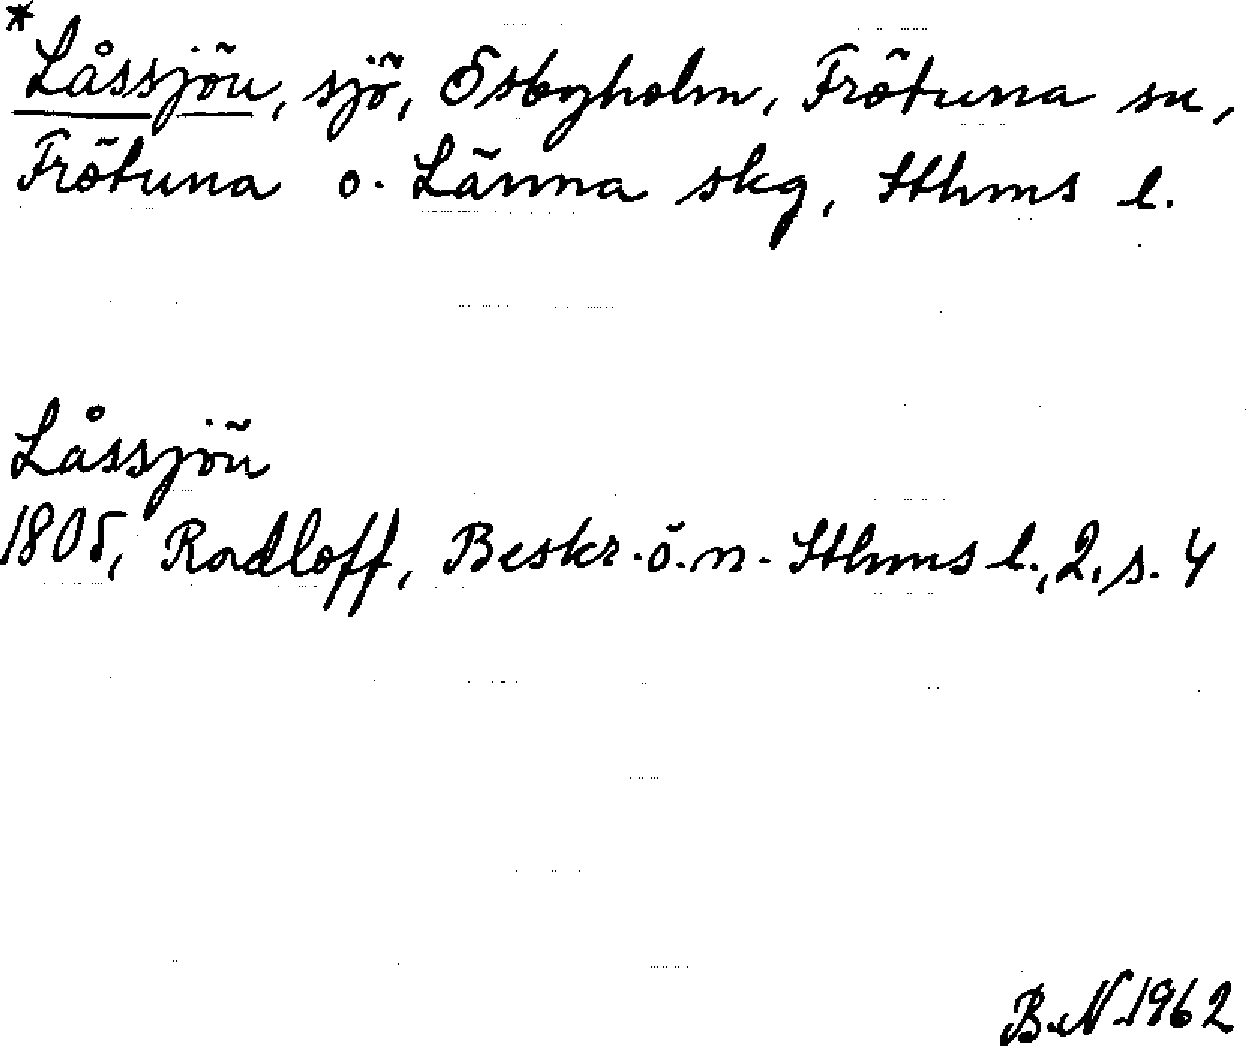 *Låssjön, sjö, Osbyholm, Frötuna sn,
Frötuna o. Länna skg, Sthms l.
Låssjön
1805, Radloff, Beskr. ö. n. Sthms l., 2, s. 4
B.N. 1962